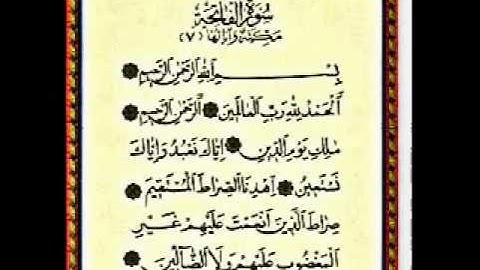 سُورَةُ الفَاتِحَةِ
مَكيَّة وَآيَاتهَا (٧)
بِسْمِ اللهِ الرَّحْمٰنِ الرَّحِيمِ
اَلْحَمْدُ لِلهِ رَبِّ الْعَالَمِينَ الرَّحْمٰنِ الرَّحِيمِ
مٰلِكِ يَوْمِ الدِّينِ اِيَّاكَ نَعْبُدُ وَاِيَّاكَ
نَسْتَعِينُ اِهْدِنَا الصِّرَاطَ الْمُسْتَقِيمَ
صِرَاطَ الَّذِينَ اَنْعَمْتَ عَلَيْهِمْ غَيْرِ
الْمَغْضُوبِ عَلَيْهِمْ وَلَا الضَّالِّينَ